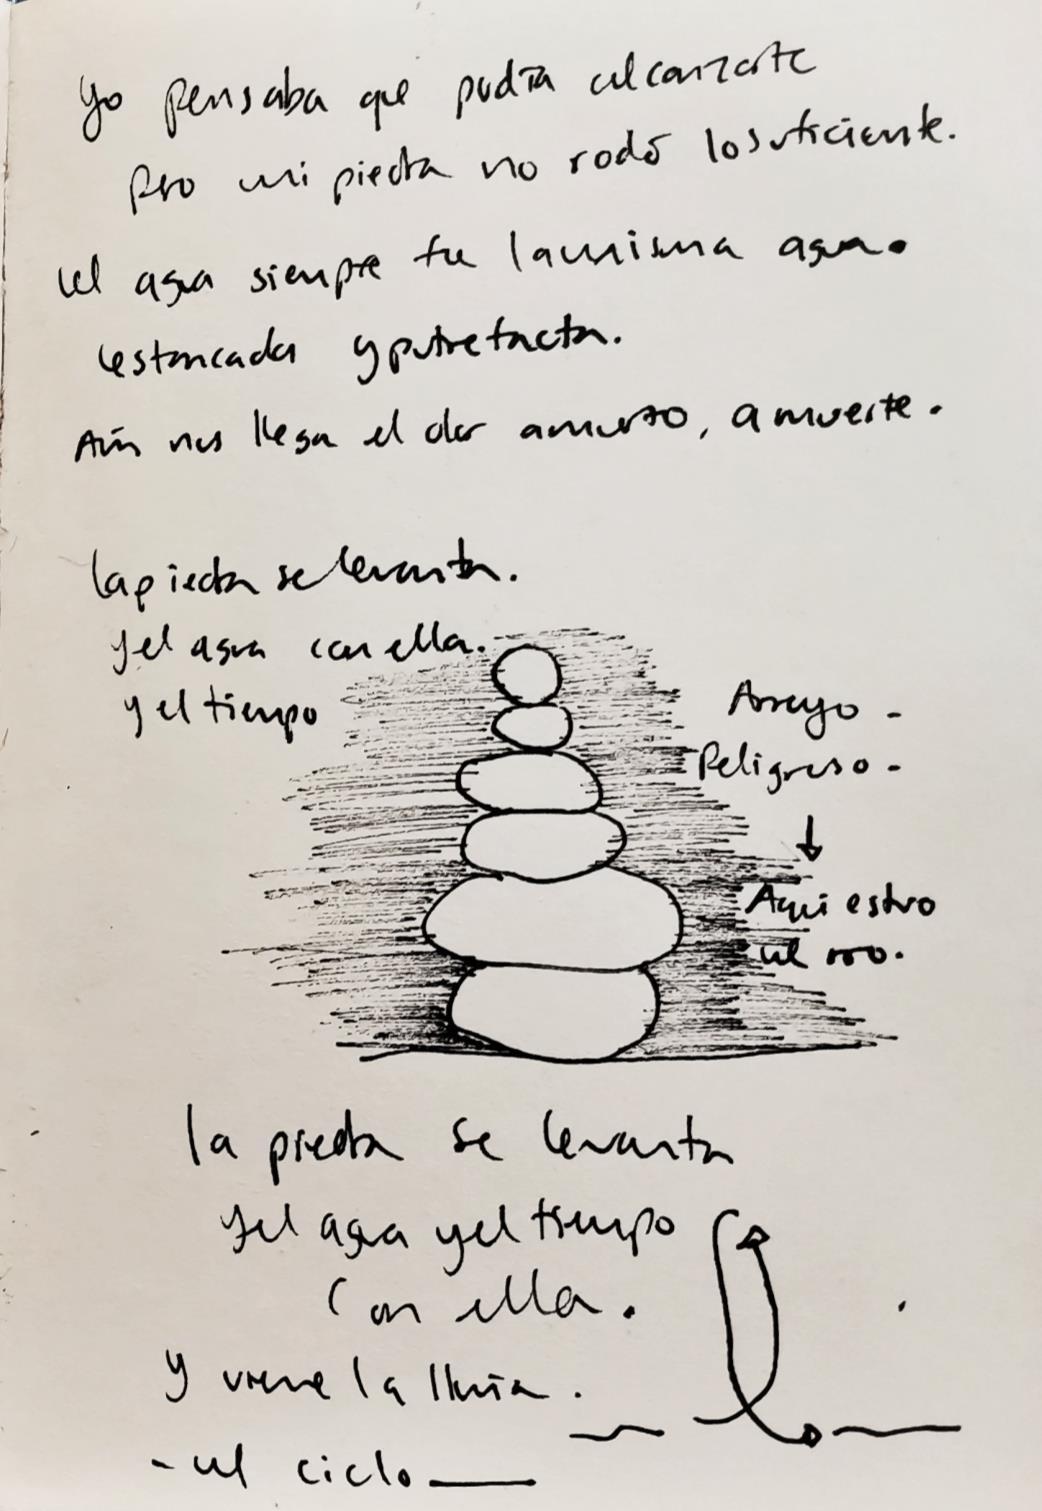 Yo pensaba que podía alcanzarte
Pero mi piedra no rodó lo suficiente.
el agua siempre fue la misma agua.
estancada y putrefacta.
Aún nos llega el olor a muerto, a muerte.
la piedra se levanta.
y el agua con ella.
y el tiempo
Arroyo -
Peligroso -
↓
Aquí estuvo
el río.
la piedra se levanta
y el agua y el tiempo
con ella.
Y viene la lluvia.
- el ciclo